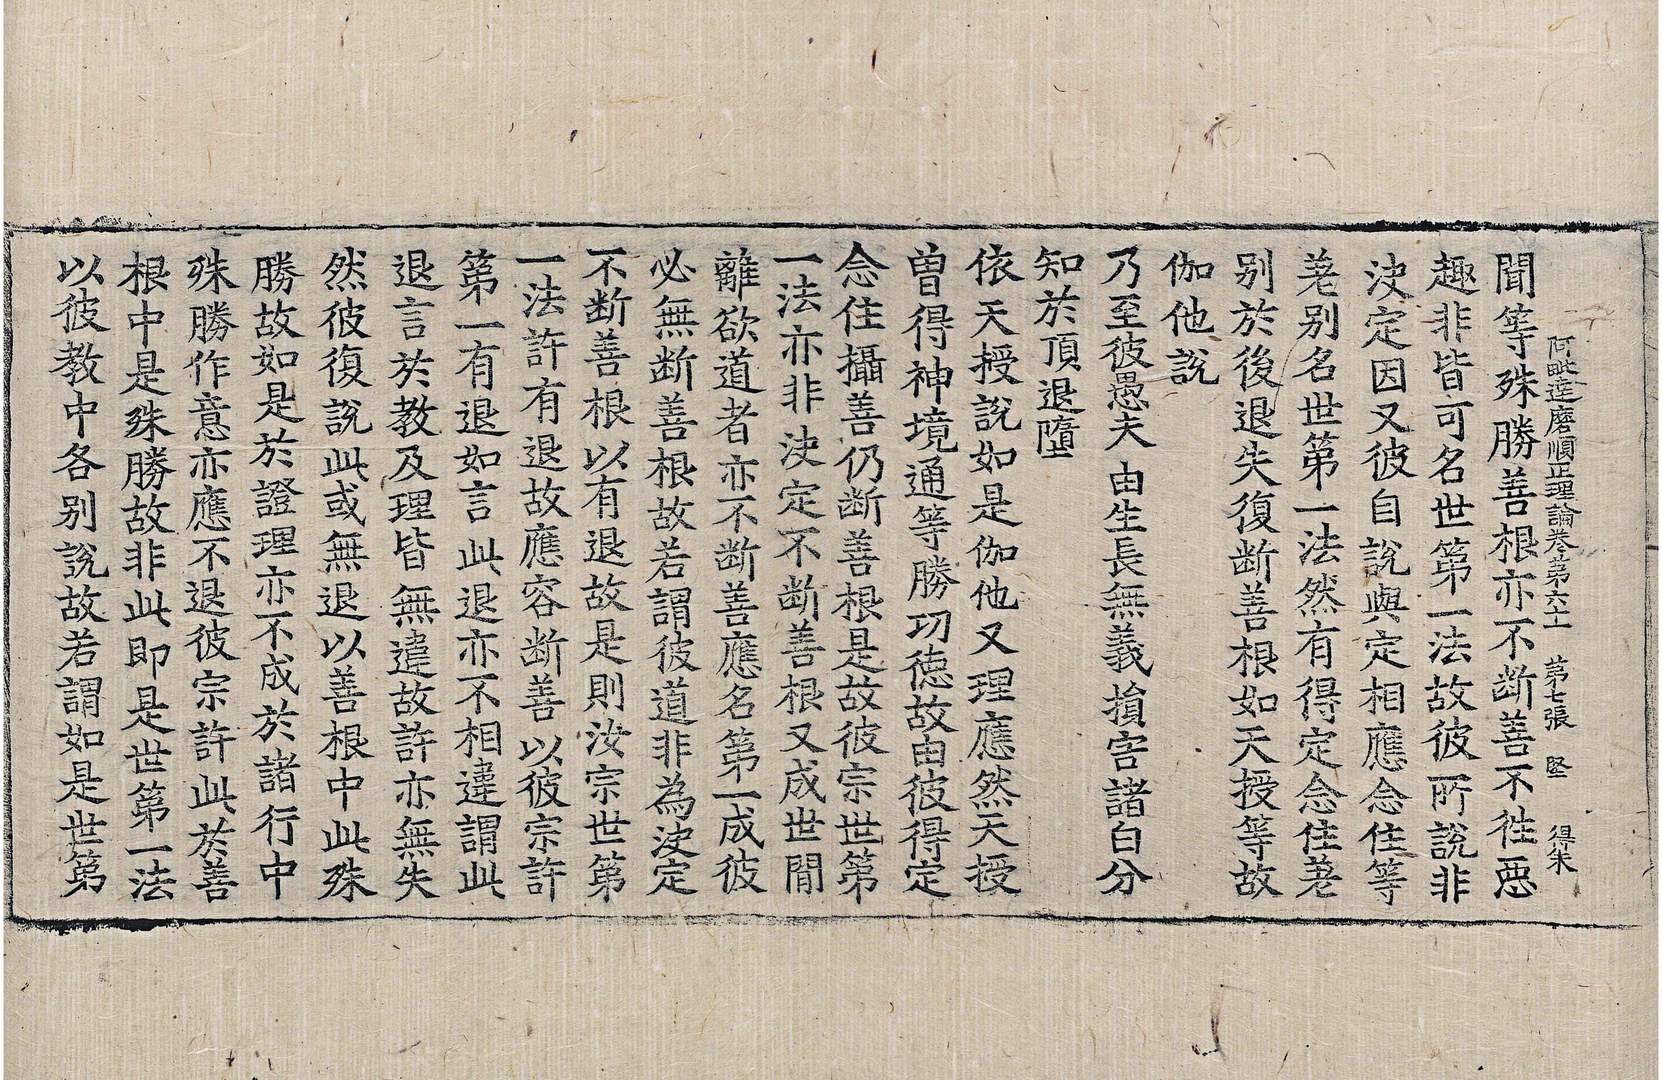 阿毗達磨順正理論卷第六十一 第七張 堅 得朱
聞等殊勝善根亦不断善不徃惡
趣非皆可名世第一法故彼所說非
决定因又彼自說與定相應念住等
差别名世第一法然有得定念住差
别於後退失復断善根如天授等故
伽他說
乃至彼愚夫 由生長無義 損害諸白分
知於頂退墮
依天授說如是伽他又理應然天授
曽得神境通等勝功德故由彼得定
念住攝善仍断善根是故彼宗世第
一法亦非决定不断善根又成世間
離欲道者亦不断善應名第一成彼
必無断善根故若謂彼道非為决定
不断善根以有退故是則汝宗世第
一法許有退故應容断善以彼宗許
第一有退如言此退亦不相違謂此
退言於教及理皆無違故許亦無失
然彼復說此或無退以善根中此殊
勝故如是於證理亦不成於諸行中
殊勝作意亦應不退彼宗許此於善
根中是殊勝故非此即是世第一法
以彼教中各别說故若謂如是世第